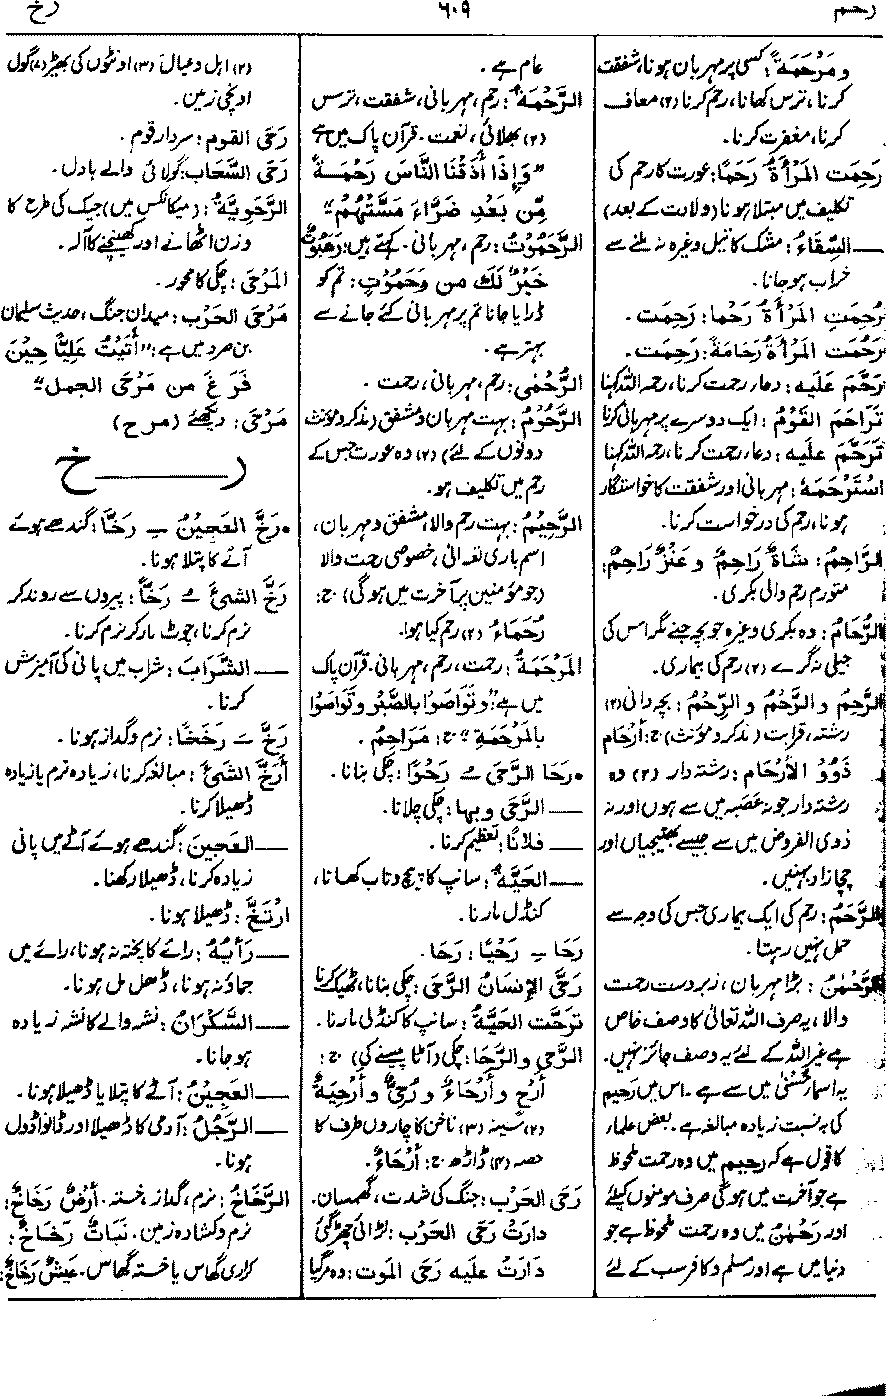 رحم
٦٠٩
رخ
و مَرْحَمَةً: کسی پر مہربان ہونا، شفقت
کرنا، ترس کھانا، رحم کرنا (۲) معاف
کرنا، مغفرت کرنا۔
رَحِمَتِ المَرْأَةُ رَحَمًا: عورت کا رحم کی
تکلیف میں مبتلا ہونا (ولادت کے بعد)
— السِّقَاءُ: مشک کا تیل وغیرہ نہ ملنے سے
خراب ہوجانا۔
رُحِمَتِ المَرْأَةُ رَحْمًا: رَحِمَت۔
رَحُمَت المَرْأَةُ رَحَامَةً: رَحِمَت۔
رَحَّمَ عَلَيه: دعاء رحمت کرنا، رحمہ اللہ کہنا
تَرَاحَمَ القَوْمُ: ایک دوسرے پر مہربانی کرنا
تَرَحَّمَ عَلَيه: دعاء رحمت کرنا، رحمہ اللہ کہنا
اسْتَرْحَمَهُ: مہربانی اور شفقت کا خواستگار
ہونا، رحم کی درخواست کرنا۔
الرَّاحِمُ: شَاةٌ رَاحِمٌ و عَنْزٌ رَاحِمٌ:
متورم رحم والی بکری۔
الرُّحَامُ: وہ بکری وغیرہ جو بچہ جنے مگر اس کی
جیلی نہ گرے (۲) رحم کی بیماری۔
الرَّحِمُ و الرَّحْمُ و الرِّحْمُ: بچہ دانی (۲)
رشتہ، قرابت (مذکر و مؤنث) ج: أَرْحَام
ذَوُو الأَرْحَام: رشتہ دار (۲) وہ
رشتہ دار جو نہ عصبہ میں سے ہوں اور نہ
ذوی الفروض میں سے جیسے بھتیجیاں اور
چچا زاد بہنیں۔
الرَّحَمُ: رحم کی ایک بیماری جس کی وجہ سے
حمل نہیں رہتا۔
الرَّحْمٰنُ: بڑا مہربان، زبردست رحمت
والا، یہ صرف اللہ تعالیٰ کا وصف خاص
ہے غیر اللہ کے لئے یہ وصف جائز نہیں۔
یہ اسماء حسنیٰ میں سے ہے۔ اس میں رحیم
کی بہ نسبت زیادہ مبالغہ ہے۔ بعض علماء
کا قول ہے کہ رحیم میں وہ رحمت ملحوظ
ہے جو آخرت میں ہوگی صرف مومنوں کیلئے
اور رَحْمٰنُ میں وہ رحمت ملحوظ ہے جو
دنیا میں ہے اور مسلم و کافر سب کے لئے
عام ہے۔
الرَّحْمَةُ: رحم، مہربانی، شفقت، ترس
(۲) بھلائی، نعمت۔ قرآن پاک میں ہے
”وَإِذَا أَذَقْنَا النَّاسَ رَحْمَةً
مِّن بَعْدِ ضَرَّاءَ مَسَّتْهُمْ“
الرَّحَمُوْتُ: رحم، مہربانی۔ کہتے ہیں: رَهَبُوْتٌ
خَيْرٌ لَكَ من رَحَمُوْتٍ: تم کو
ڈرایا جانا تم پر مہربانی کئے جانے سے
بہتر ہے۔
الرُّحْمٰى: رحم، مہربانی، رحمت۔
الرَّحُوْمُ: بہت مہربان و مشفق (مذکر و مؤنث
دونوں کے لئے) (۲) وہ عورت جس کے
رحم میں تکلیف ہو۔
الرَّحِيْمُ: بہت رحم والا، مشفق و مہربان،
اسم باری تعالیٰ، خصوصی رحمت والا
(جو مؤمنین پر آخرت میں ہوگی) ج:
رُحَمَاءُ (۲) رحم کیا ہوا۔
المَرْحَمَةُ: رحمت، رحم، مہربانی۔ قرآن پاک
میں ہے: ”وَتَوَاصَوْا بِالصَّبْرِ وَتَوَاصَوْا
بِالْمَرْحَمَةِ“ ج: مَرَاحِمُ۔
• رَحَا الرَّحَى ُ رَحْوًا: چکی بنانا۔
— الرَّحَى وبها: چکی چلانا۔
— فلانًا: تعظیم کرنا۔
— الحَيَّةُ: سانپ کا پیچ و تاب کھانا،
کنڈل مارنا۔
رَحَا ِ رَحْيًا: رَحَا۔
رَحَّى الإنسَانُ الرَّحَى: چکی بنانا، ٹھیک کرنا
تَرَحَّت الحَيَّةُ: سانپ کا کنڈلی مارنا۔
الرَّحَى والرَّحَا: چکی (آٹا پیسنے کی) ج:
أَرْحٍ و أَرْحَاءٌ و رُحِيٌّ و أَرْحِيَةٌ
(۲) سینہ (۳) ناخن کا چاروں طرف کا
حصہ (۴) ڈاڑھ ج: أَرْحَاءٌ۔
رَحَى الحَرْب: جنگ کی شدت، گھمسان۔
دارَتْ رَحَى الحَرْب: لڑائی چھڑ گئی
دَارَت علیه رَحَى الموت: وہ مر گیا
(۲) اہل و عیال (۳) اونٹوں کی بھیڑ (۴) گول
اونچی زمین۔
رَحَى القوم: سردار قوم۔
رَحَى السَّحَاب: گولائی والے بادل۔
الرَّحَوِيَّةُ: (میکانکس میں) جیک کی طرح کا
وزن اٹھانے اور کھینچنے کا آلہ۔
المَرْحَى: چکی کا محور۔
مَرْحَى الحَرْب: میدان جنگ، حدیث سلمان
بن صرد میں ہے: ”أَتَيْتُ عَلِيًّا حِيْنَ
فَرَغَ من مَرْحَى الجمل“
مَرْحَى: دیکھئے (م ر ح)
ر — خ
• رَخَّ العَجِيْنُ ِ رَخًّا: گندھے ہوئے
آٹے کا پتلا ہونا۔
رَخَّ الشئَ ُ رَخًّا: پیروں سے روند کر
نرم کرنا، چوٹ مار کر نرم کرنا۔
— الشَّرَابَ: شراب میں پانی کی آمیزش
کرنا۔
رَخَّ َ رَخَخًا: نرم و گداز ہونا۔
أَرَخَّ الشئَ: مبالغہ کرنا، زیادہ نرم یا زیادہ
ڈھیلا کرنا۔
— العَجِينَ: گندھے ہوئے آٹے میں پانی
زیادہ کرنا، ڈھیلا رکھنا۔
ارْتَخَّ: ڈھیلا ہونا۔
— رَأيُهُ: رائے کا پختہ نہ ہونا، رائے میں
جماؤ نہ ہونا، ڈھل مل ہونا۔
— السَّكْرَانُ: نشہ والے کا نشہ زیادہ
ہوجانا۔
— العَجِيْنُ: آٹے کا پتلا یا ڈھیلا ہونا۔
— الرَّجُلُ: آدمی کا ڈھیلا اور ڈانواڈول
ہونا۔
الرَّخَاخُ: نرم، گداز، خستہ۔ أَرْضٌ رَخَاخٌ:
نرم و کشادہ زمین۔ نَبَاتٌ رَخَاخٌ:
کراری گھاس یا خستہ گھاس۔ عَيشٌ رَخَاخٌ: